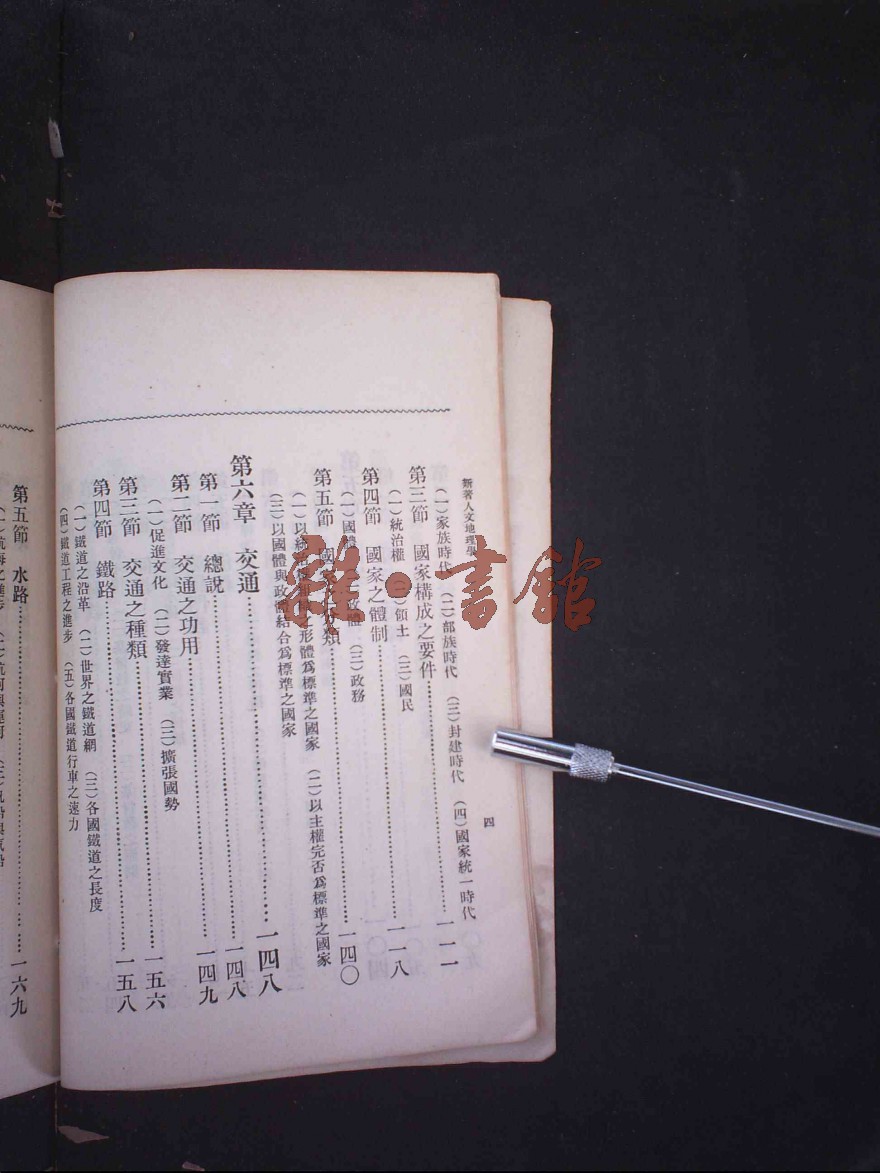 新著人文地理學
四
(一)家族時代 (二)部族時代 (三)封建時代 (四)國家統一時代
第三節 國家構成之要件 一一一
(一)統治權 (二)領土 (三)國民
第四節 國家之體制 一一八
(一)國體 政體 (三)政務
第五節 國 類 一四〇
(一)以統治 之形體爲標準之國家 (二)以主權完否爲標準之國家
(三)以國體與政體結合爲標準之國家
第六章 交通 一四八
第一節 總說 一四八
第二節 交通之功用 一四九
(一)促進文化 (二)發達實業 (三)擴張國勢
第三節 交通之種類 一五六
第四節 鐵路 一五八
(一)鐵道之沿革 (二)世界之鐵道網 (三)各國鐵道之長度
(四)鐵道工程之進步 (五)各國鐵道行車之速力
第五節 水路 一六九
(一)航海之進步
雜·書館